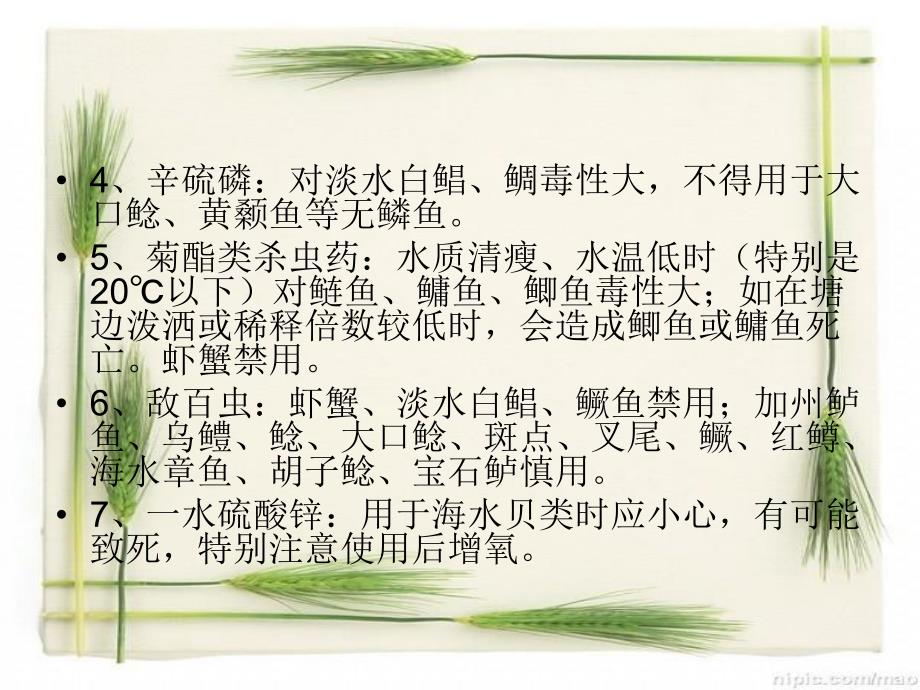 • 4、辛硫磷：对淡水白鲳、鲷毒性大，不得用于大
口鲶、黄颡鱼等无鳞鱼。
• 5、菊酯类杀虫药：水质清瘦、水温低时（特别是
20℃以下）对鲢鱼、鳙鱼、鲫鱼毒性大；如在塘
边泼洒或稀释倍数较低时，会造成鲫鱼或鳙鱼死
亡。虾蟹禁用。
• 6、敌百虫：虾蟹、淡水白鲳、鳜鱼禁用；加州鲈
鱼、乌鳢、鲶、大口鲶、斑点、叉尾、鳜、红鳟、
海水章鱼、胡子鲶、宝石鲈慎用。
• 7、一水硫酸锌：用于海水贝类时应小心，有可能
致死，特别注意使用后增氧。
nipic.com/mao